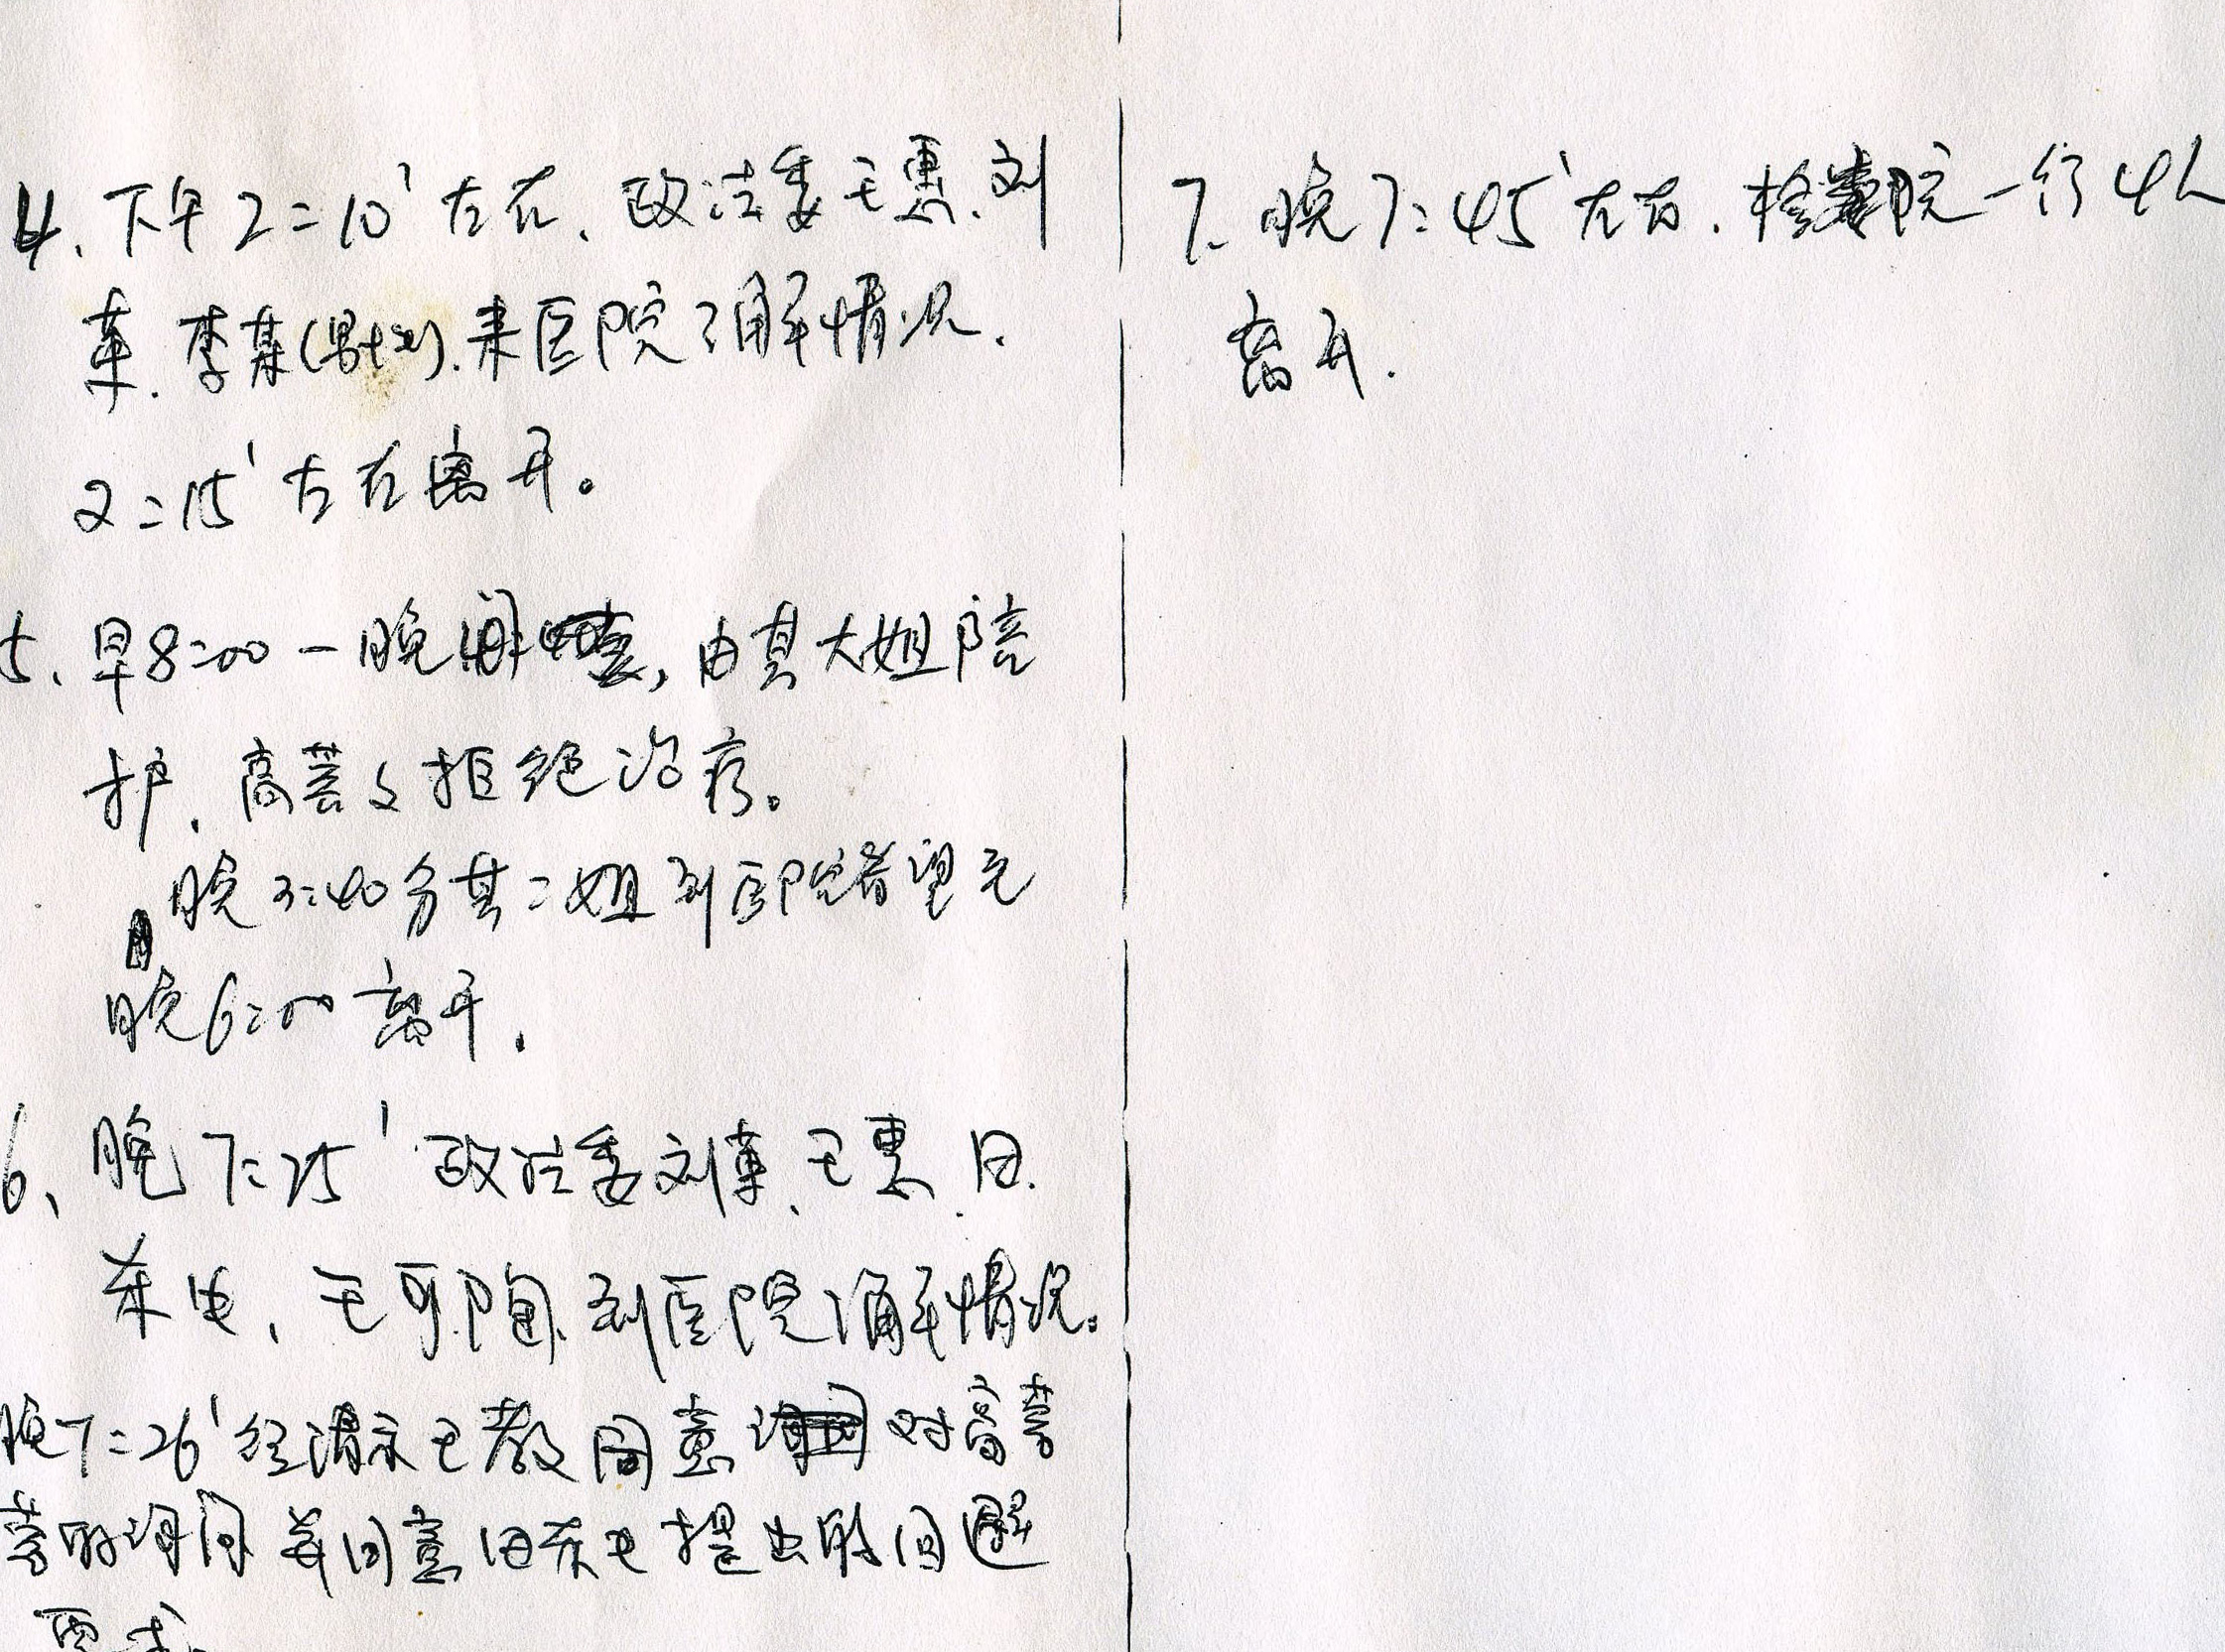 4、下午2:10'左右、政法委王惠、刘
革、李某(男性)、来医院了解情况.
2:15'左右离开。
5、早8:00-晚，由其大姐陪
护、高蓉又拒绝治疗。
晚3:40分其二姐到医院看望完
晚6:00离开.
6、晚7:25'政法委刘革、王惠、田
来电、王可陶到医院了解情况。
晚7:26'经请示王教同意对高蓉
蓉的询问并同意田来电提出的回避
要求
7、晚7:45'左右.检察院一行4人
离开.